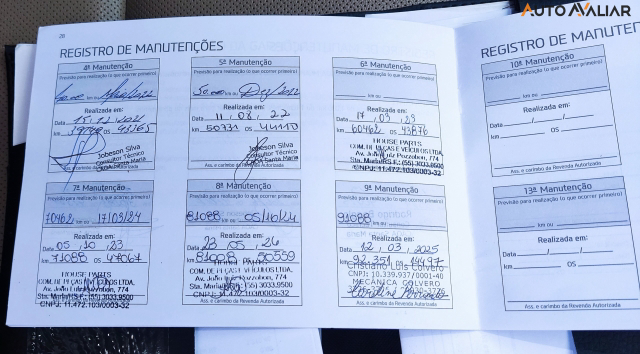 AUTO AVALIAR
28
REGISTRO DE MANUTENÇÕES
4ª Manutenção
Previsão para realização (o que ocorrer primeiro)
40.000 km ou
Realizada em:
Data 15.12.2021
km OS 43265
Jobeson Silva
Consultor Técnico
Santa Maria
Ass. e carimbo da Revenda Autorizada
5ª Manutenção
Previsão para realização (o que ocorrer primeiro)
50.000 km ou Dez/2022
Realizada em:
Data 11.08.22
km 50931 OS 44110
Jobeson Silva
Consultor Técnico
Santa Maria
Ass. e carimbo da Revenda Autorizada
6ª Manutenção
Previsão para realização (o que ocorrer primeiro)
km ou
Realizada em:
Data 17 03 23
km 60462 OS 43876
HOUSE PARTS
COM. DE PEÇAS E VEÍCULOS LTDA.
Av. João Luiz Pozzobon, 774
Sta. Maria/RS F.: (55) 3033.9500
CNPJ: 11.472.103/0003-32
7ª Manutenção
Previsão para realização (o que ocorrer primeiro)
70462 km ou 17/03/24
Realizada em:
Data 05.10.23
km 71088 OS 47067
HOUSE PARTS
COM. DE PEÇAS E VEÍCULOS LTDA.
Av. João Luiz Pozzobon, 774
Sta. Maria/RS F.: (55) 3033.9500
CNPJ: 11.472.103/0003-32
8ª Manutenção
Previsão para realização (o que ocorrer primeiro)
81088 km ou 05/10/24
Realizada em:
Data 23 05 24
km 81008 OS 50559
HOUSE PARTS
COM. DE PEÇAS E VEÍCULOS LTDA.
Av. João Luiz Pozzobon, 774
Sta. Maria/RS F.: (55) 3033.9500
CNPJ: 11.472.103/0003-32
9ª Manutenção
Previsão para realização (o que ocorrer primeiro)
91088 km ou
Realizada em:
Data 12.03.2025
km 92.351 OS 14497
Cristiano Luis Colvero
CNPJ: 10.339.937/0001-40
MECÂNICA COLVERO
Ass. e carimbo da Revenda Autorizada
REGISTRO DE MAN
10ª Manutenção
Previsão para realização (o que ocorrer primeiro)
km ou
Realizada em:
Data / /
km OS
Ass. e carimbo da Revenda Autorizada
13ª Manutenção
Previsão para realização (o que ocorrer primeiro)
km ou
Realizada em:
Data / /
km OS
Ass. e carimbo da Revenda Autorizada